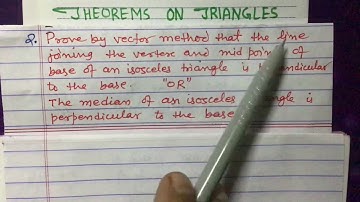 THEOREMS ON TRIANGLES
2. Prove by vector method that the line
joining the vertex and mid point of
base of an isosceles triangle is
to the base. "OR"
The median of an isosceles is
perpendicular to the base